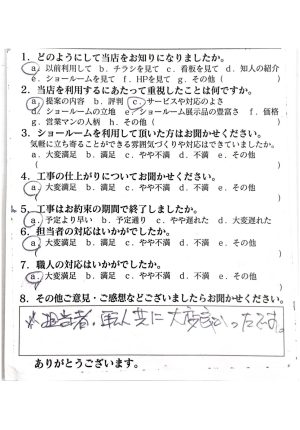 1. どのようにして当店をお知りになりましたか。
a. 以前利用して b. チラシを見て c. 看板を見て d. 知人の紹介
e. ショールームを見て f. HPを見て g. その他（ ）
2. 当店を利用するにあたって重視したことは何ですか。
a. 提案の内容 b. 評判 c. サービスや対応のよさ
d. ショールームの立地 e. ショールーム展示品の豊富さ f. 価格
g. 営業マンの人柄 h. その他（ ）
3. ショールームを利用して頂いた方はお聞かせください。
気軽に立ち寄ることができる雰囲気づくりや対応はできていましたか。
a. 大変満足 b. 満足 c. やや不満 d. 不満 e. その他
（ ）
4. 工事の仕上がりについてお聞かせください。
a. 大変満足 b. 満足 c. やや不満 d. 不満 e. その他
（ ）
5. 工事はお約束の期間で終了しましたか。
a. 予定より早い b. 予定通り c. やや遅れた d. 大変遅れた
6. 担当者の対応はいかがでしたか。
a. 大変満足 b. 満足 c. やや不満 d. 不満 e. その他
（ ）
7. 職人の対応はいかがでしたか。
a. 大変満足 b. 満足 c. やや不満 d. 不満 e. その他
（ ）
8. その他ご意見・ご感想などございましたらお聞かせください。
担当者、職人共に大変良かったです。
ありがとうございます。